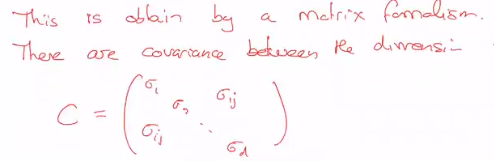 This is obtain by a matrix formalism.
There are covariance between the dimensi-
C = ( σ₁ σ₂ σᵢⱼ σᵢⱼ ⋱ σ_d )